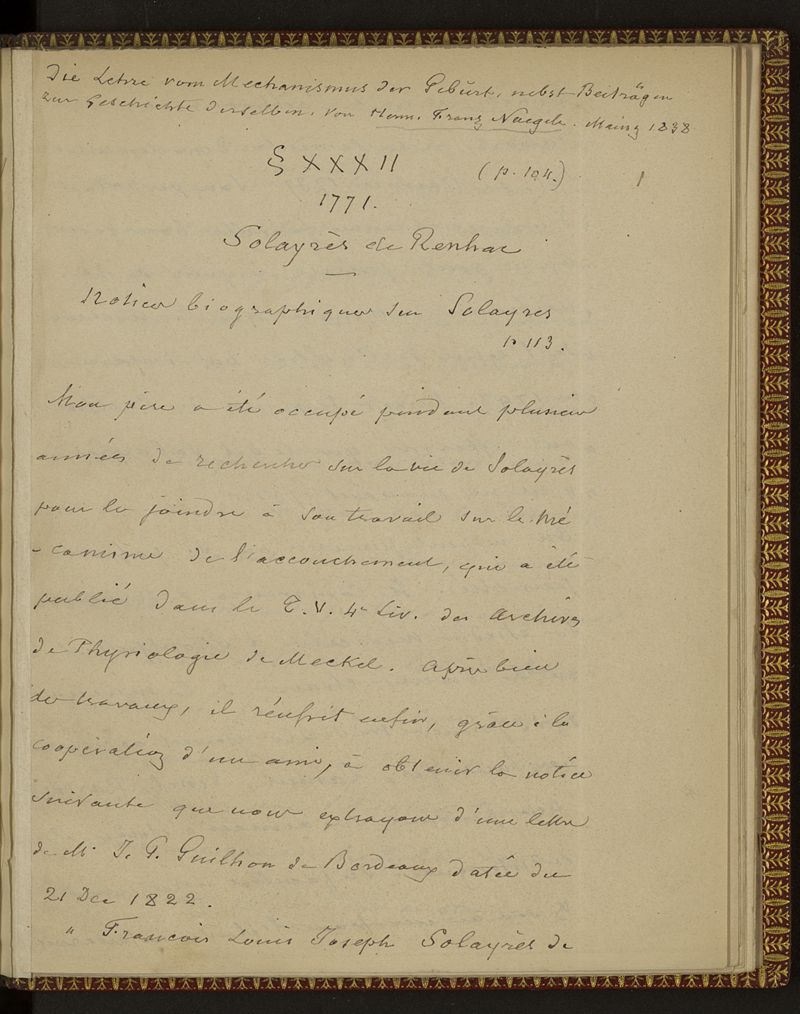 Die Lehre vom Mechanismus der Geburt, nebst Beiträgen
zur Geschichte derselben, von Herm. Franz Naegele. Mainz 1838
§ XXXII (p. 104.) 1
1771.
Solayrès de Renhac
Notices biographiques sur Solayres
p 113.
Mon père a été occupé pendant plusieurs
années de recherches sur la vie de Solayrès
pour la joindre à son travail sur le Mé
-canisme de l'accouchement, qui a été
publié dans le T. V. 4e Liv. des Archives
de Physiologie de Meckel. Après bien
des travaux, il réussit enfin, grâce à la
coopération d'un ami, à obtenir la notice
suivante que nous extrayons d'une lettre
de Mr J. P. Guilhon de Bordeaux datée du
21 Dec 1822.
" Francois Louis Joseph Solayrès de